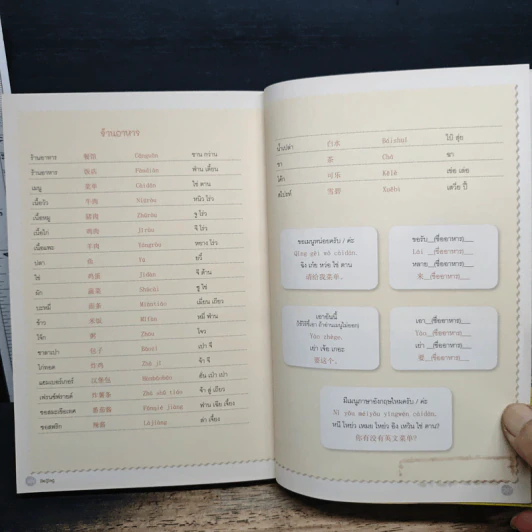 ร้านอาหาร
ร้านอาหาร 餐馆 Cānguǎn ชาน กว่าน
ร้านอาหาร 饭店 Fàndiàn ฟ่าน เตี้ยน
เมนู 菜单 Càidān ไช่ ตาน
เนื้อวัว 牛肉 Niúròu หนิว โร่ว
เนื้อหมู 猪肉 Zhūròu จู โร่ว
เนื้อไก่ 鸡肉 Jīròu จี โร่ว
เนื้อแพะ 羊肉 Yángròu หยาง โร่ว
ปลา 鱼 Yú
ไข่ 鸡蛋 Jīdàn จี ต้าน
ผัก 蔬菜 Shūcài ซู ไช่
บะหมี่ 面条 Miàntiáo เมี่ยน เถียว
ข้าว 米饭 Mǐfàn หมี่ ฟ่าน
โจ๊ก 粥 Zhōu โจว
ซาลาเปา 包子 Bāozi เปา จึ
ไก่ทอด 炸鸡 Zhá jī จ๋า จี
แฮมเบอร์เกอร์ 汉堡包 Hànbǎobāo ฮั่น เป่า เปา
เฟรนช์ฟรายส์ 炸薯条 Zhá shǔ tiáo จ๋า ฉู่ เถียว
ซอสมะเขือเทศ 番茄酱 Fānqié jiàng ฟาน เฉีย เจี้ยง
ซอสพริก 辣酱 Làjiàng ล่า เจี้ยง
Beijing
น้ำเปล่า 白水 Báishuǐ ไป๋ สุ่ย
ชา 茶 Chá ฉา
โค้ก 可乐 Kělè เข่อ เล่อ
สไปรท์ 雪碧 Xuěbì เสวี่ย ปี้
ขอเมนูหน่อยครับ / ค่ะ
Qǐng gěi wǒ càidān.
ฉิง เก๋ย หว่อ ไช่ ตาน
请给我菜单。
ขอรับ__(ชื่ออาหาร)___
Lái __(ชื่ออาหาร)___
หลาย__(ชื่ออาหาร)___
来__(ชื่ออาหาร)___
เอาอันนี้
Yào zhège.
เย่า เจ้อ เกอะ
要这个。
เอา__(ชื่ออาหาร)___
Yào__(ชื่ออาหาร)___
เย่า __(ชื่ออาหาร)___
要__(ชื่ออาหาร)___
มีเมนูภาษาอังกฤษไหมครับ / ค่ะ
Nǐ yǒu méiyǒu yīngwén càidān.
หนี โหย่ว เหมย โหย่ว อิง เหวิน ไช่ ตาน?
你有没有英文菜单?